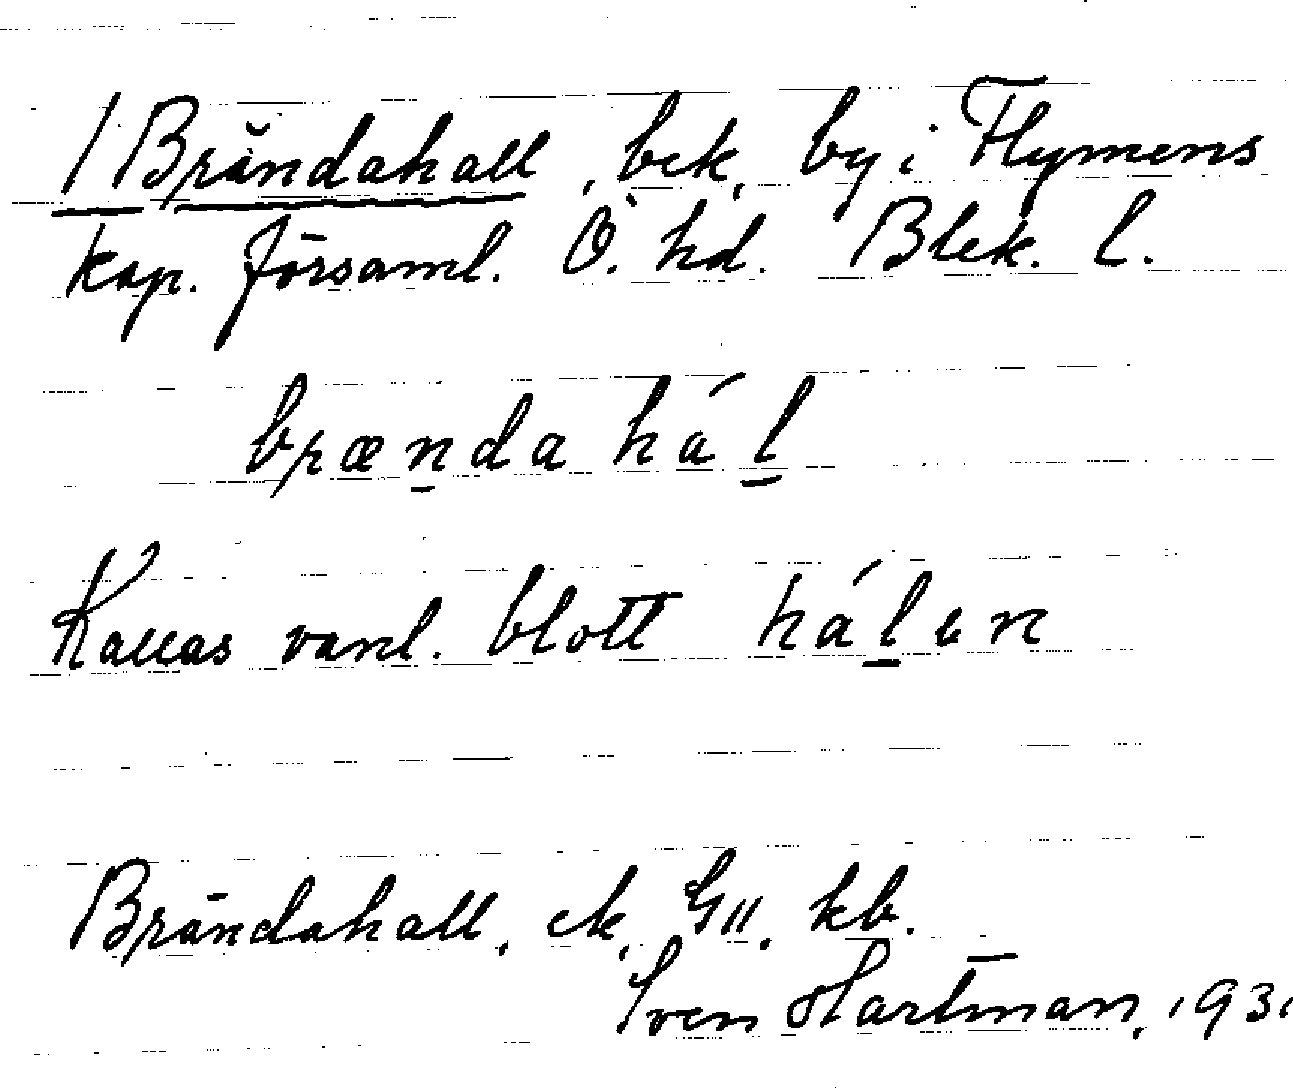 1 Brändahall, bek, by i Flymens
kap. församl. Ö. hd. Blek. l.
brænda hál
Kallas vanl. blott hálen
Brändahall, ek, GII, kb.
Sven Hartman, 1931